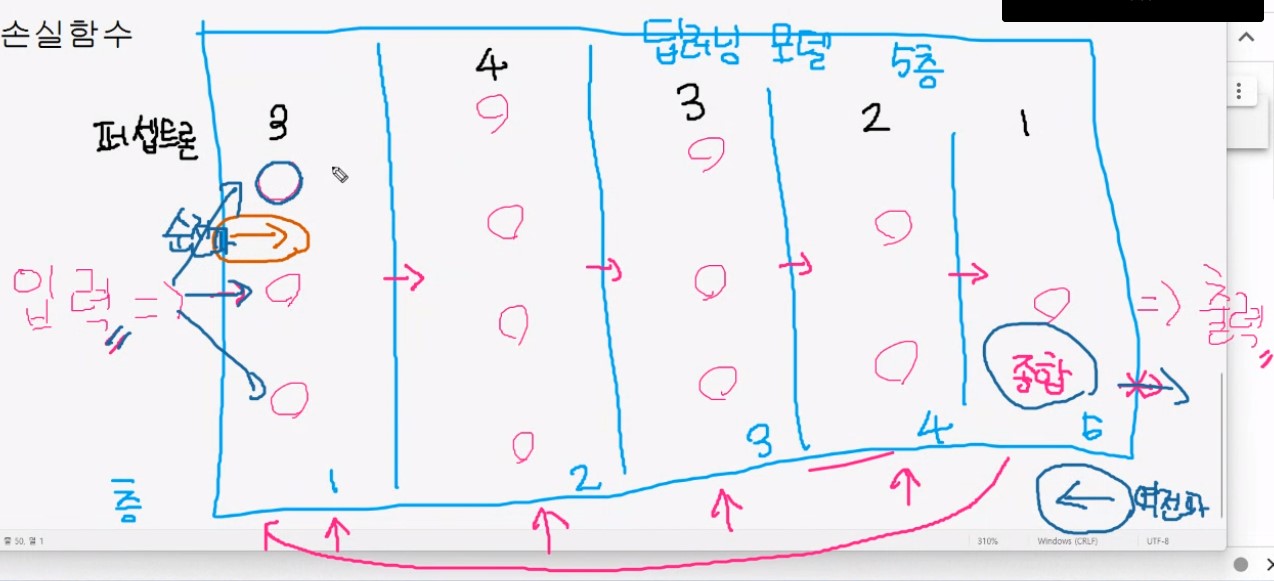 손실함수
딥러닝 모델 5층
퍼셉트론 3 4 3 2 1
입력 => => 출력
종합
층 1 2 3 4 5
← 역전파
줄 50, 열 1 310% Windows (CRLF) UTF-8